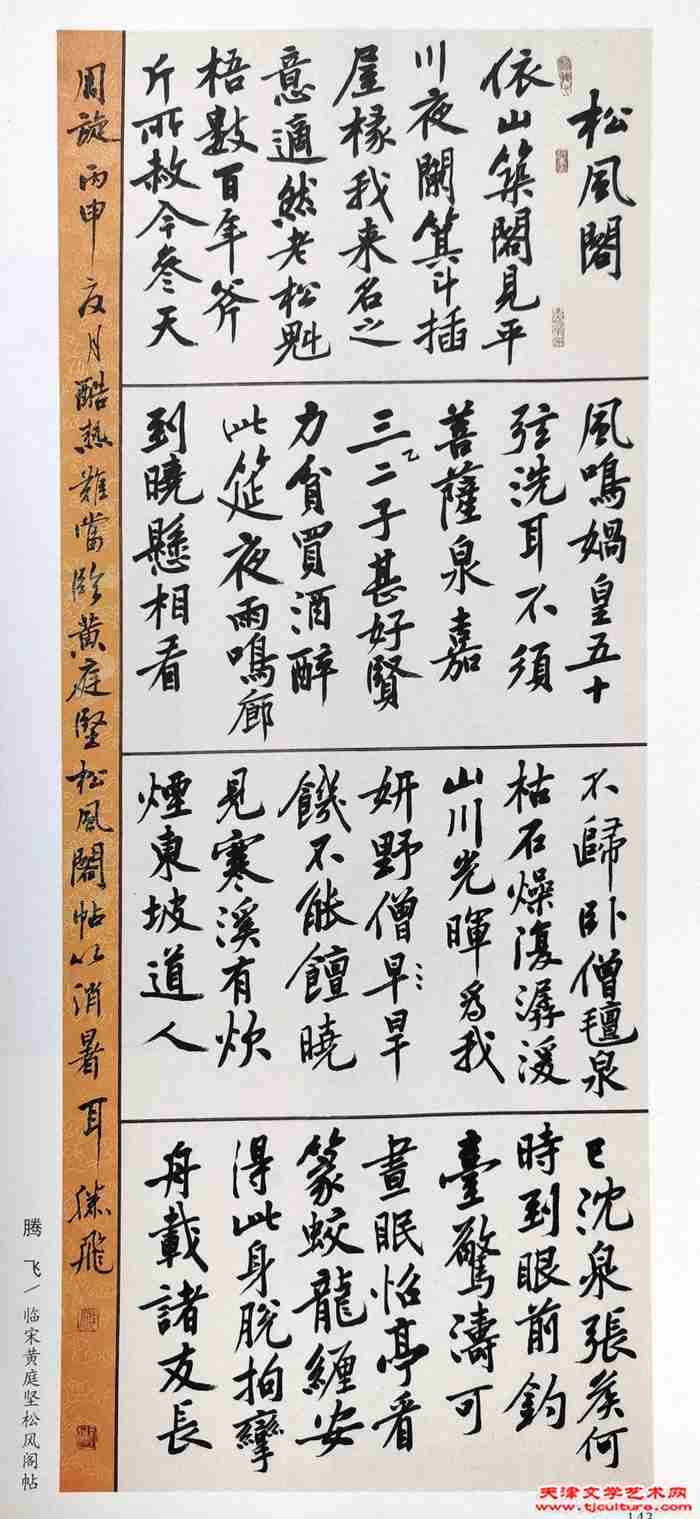 松風閣
依山築閣見平
川夜闌箕斗插
屋椽我来名之
意適然老松魁
梧數百年斧
斤所赦今參天
風鳴媧皇五十
弦洗耳不須
菩薩泉嘉
三二子甚好賢
力貧買酒醉
此筵夜雨鳴廊
到曉懸相看
不歸卧僧氈泉
枯石燥復潺湲
山川光暉為我
妍野僧早旱
饑不能饘曉
見寒溪有炊
煙東坡道人
已沈泉張侯何
時到眼前釣
臺驚濤可
晝眠怡亭看
篆蛟龍纏安
得此身脫拘攣
舟載諸友長
周旋 丙申夏月酷熱難當臨黃庭堅松風閣帖以消暑耳 騰飛
腾 飞/临宋黄庭坚松风阁帖
天津文学艺术网
www.tjculture.com
143